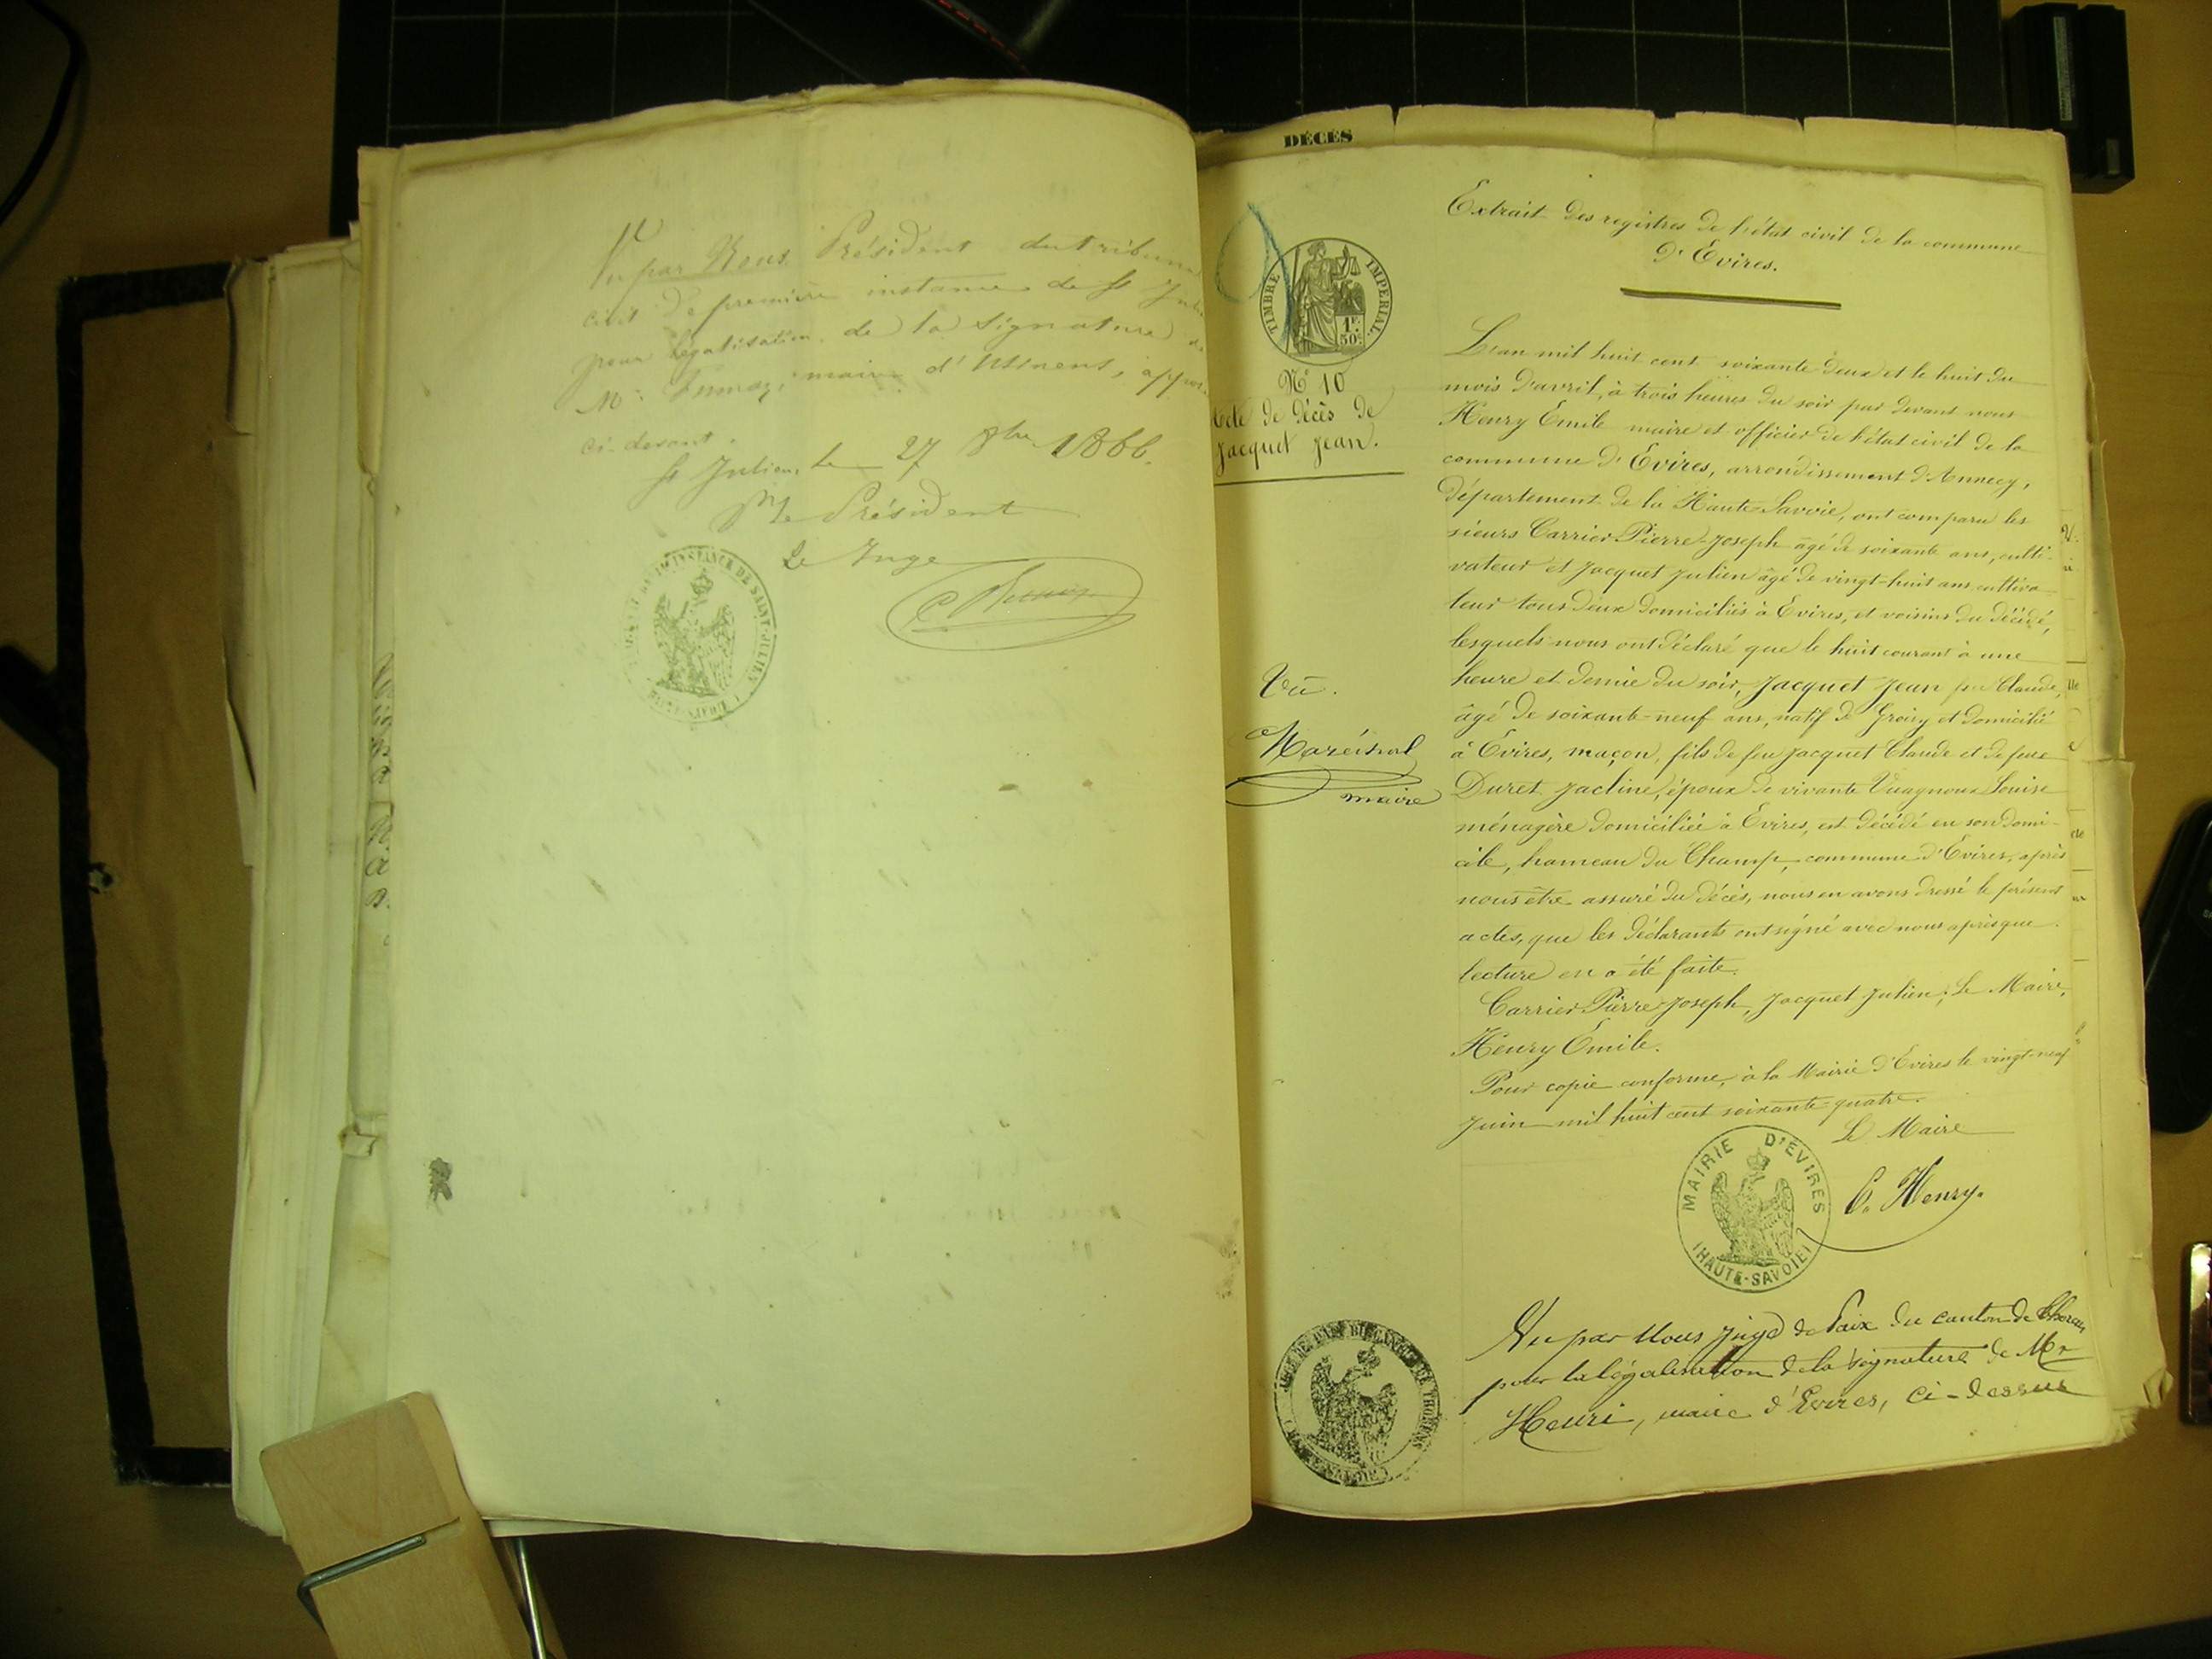 Vu par Nous Président du tribunal
civil de première instance de St Juli
pour légalisation de la signature de
Mr maire d'Usinens, appos
ci-devant.
St Julien, le 27 9bre 1866.
Pr le Président
Le Juge
INSTANCE DE SAINT-JULIEN
DÉCÈS
TIMBRE IMPERIAL
1F.
50c.
N° 10
Acte de décès de
Jacquet Jean.
Vu.
Maréchal
maire
Extrait des registres de l'état civil de la commune
d'Evires.
L'an mil huit cent soixante deux et le huit du
mois d'avril, à trois heures du soir par devant nous
Henry Emile maire et officier de l'état civil de la
commune d'Evires, arrondissement d'Annecy,
département de la Haute-Savoie, ont comparu les
sieurs Carrier Pierre-Joseph âgé de soixante ans, culti-
vateur et Jacquet Julien âgé de vingt-huit ans cultiva-
teur tous deux domiciliés à Evires, et voisins du décédé,
lesquels nous ont déclaré que le huit courant à une
heure et demie du soir, Jacquet Jean feu Claude,
âgé de soixante-neuf ans, natif de Groisy et domicilié
à Evires, maçon, fils de feu Jacquet Claude et de feue
Duret Jacline, époux de vivante Vuagnoux Louise
ménagère domiciliée à Evires, est décédé en son domi-
cile, hameau du Champ, commune d'Evires, après
nous être assuré du décès, nous en avons dressé le présent
actes, que les déclarants ont signé avec nous après que
lecture en a été faite.
Carrier Pierre-Joseph, Jacquet Julien, Le Maire,
Henry Emile.
Pour copie conforme, à la Mairie d'Evires le vingt-neuf
Juin mil huit cent soixante-quatre.
Le Maire
MAIRIE D'EVIRES
(HAUTE-SAVOIE)
E. Henry.
Vu par Nous Juge de Paix du canton de Thorens
pour la légalisation de la signature de Mr
Henri, maire d'Evires, ci-dessus